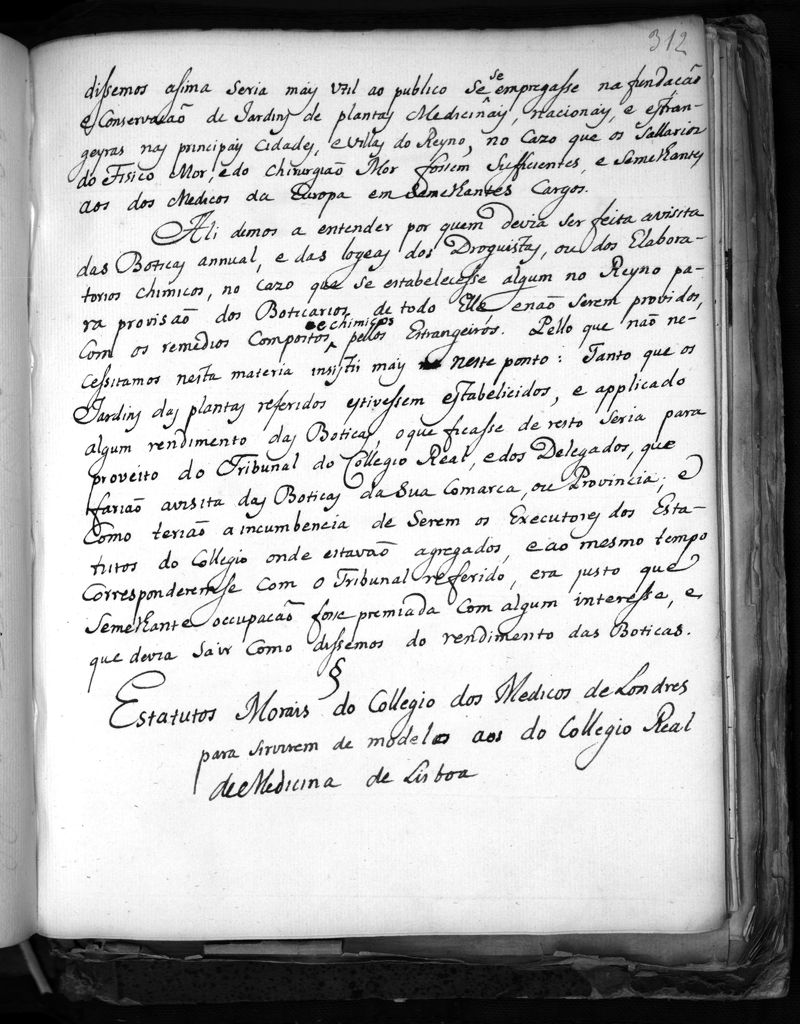 312
dissemos asima seria mais util ao publico se se empregasse na fundacaõ
e Conservacaõ de Jardins de plantas Medicinais, nacionais, e estran-
geyras nas principais cidades, e villas do Reyno, no cazo que os sallarios
do Fisico Mor, e do Chirurgiaõ Mor fossem sufficientes, e semelhantes
aos dos Medicos da Europa em Semelhantes Cargos.
Ali demos a entender por quem devia ser feita a visita
das Boticas annual, e das logeas dos Droguistas, ou dos Elabora-
torios chimicos, no cazo que se estabelecesse algum no Reyno pa-
ra provisaõ dos Boticarios de todo Elle e naõ serem providos,
Com os remedios Compostos, e chimicos pellos Estrangeiros. Pello que naõ ne-
cessitamos nesta materia insistir mais neste ponto: Tanto que os
Jardins das plantas referidos estivessem estabelicidos, e applicado
algum rendimento das Boticas, o que ficasse de resto seria para
proveito do Tribunal do Collegio Real, e dos Delegados, que
fariaõ a visita das Boticas da Sua Comarca, ou Provincia; e
Como teriaõ a incumbencia de Serem os Executores dos Esta-
tutos do Collegio onde estavaõ agregados, e ao mesmo tempo
Corresponderemse Com o Tribunal referido, era justo que
Semelhante occupacaõ fosse premiada Com algum interesse, e
que devia sair Como dissemos do rendimento das Boticas.
§
Estatutos Morais do Collegio dos Medicos de Londres
para sirvirem de modelo aos do Collegio Real
de Medicina de Lisboa